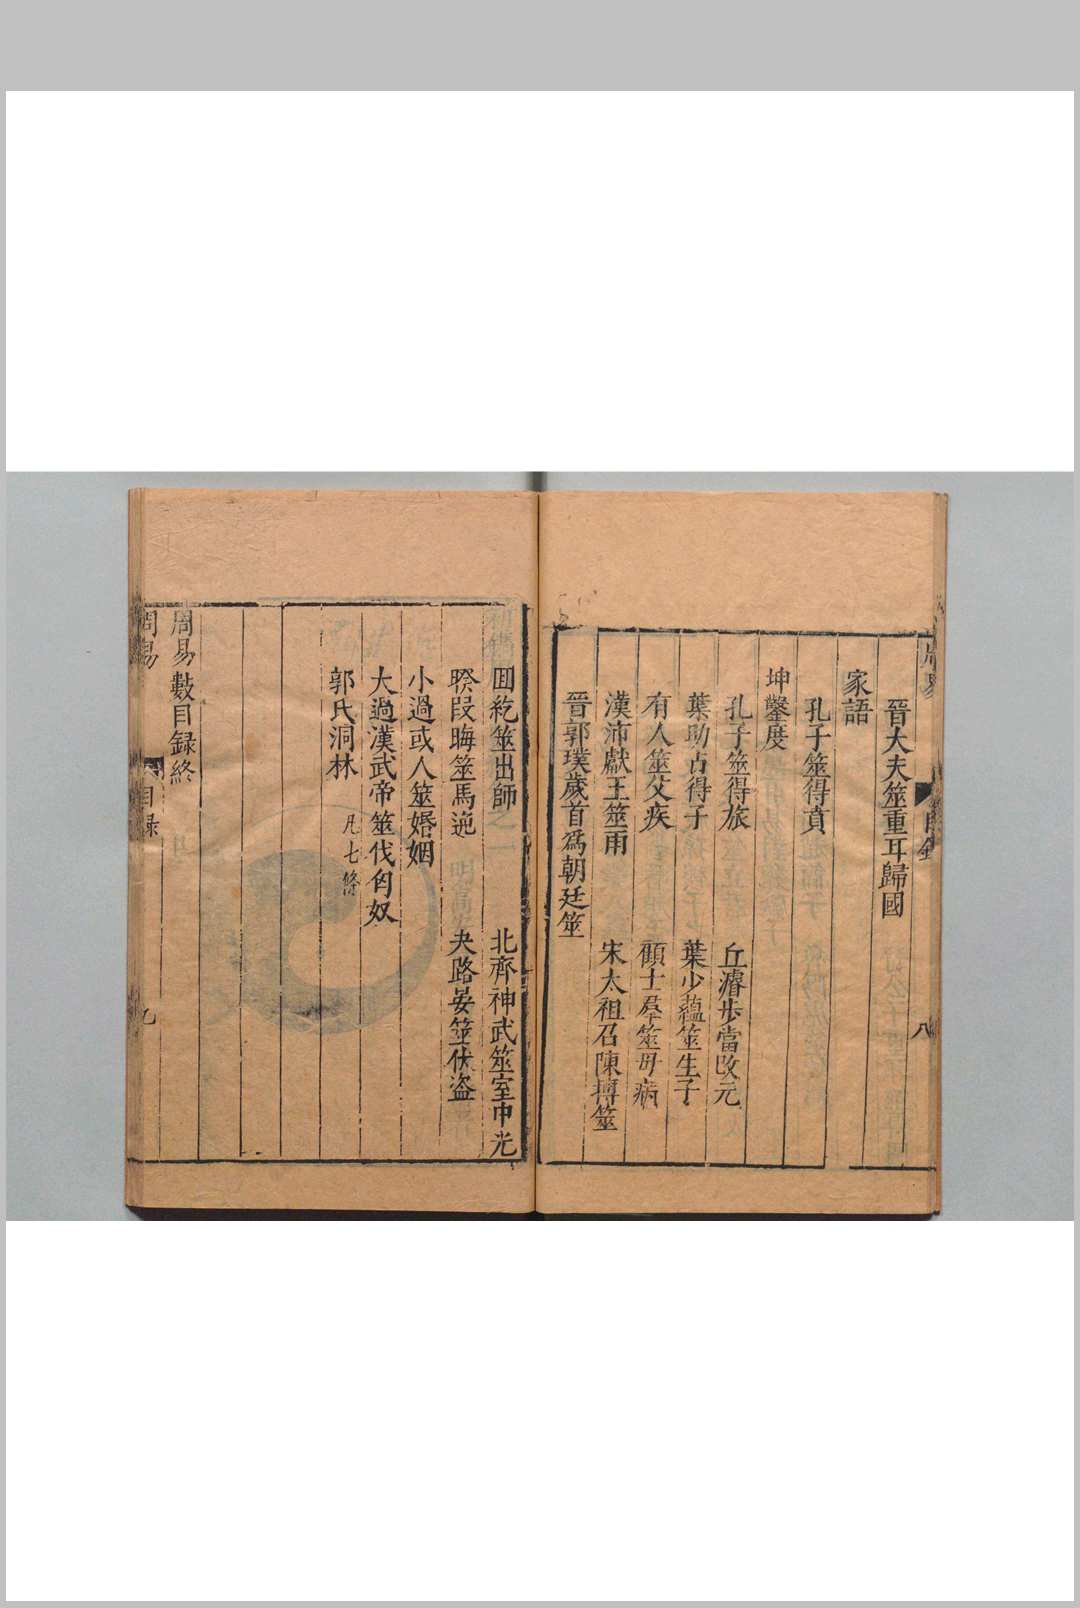 晉大夫筮重耳歸國
家語
孔子筮得賁
坤鑿度
孔子筮得旅
丘濬步當改元
葉助占得子
葉少蘊筮生子
有人筮父疾
顧士羣筮母病
漢沛獻王筮雨
宋太祖召陳摶筮
晉郭璞歲首爲朝廷筮
目錄
八
回紇筮出師
北齊神武筮室中光
段晦筮馬逸
夬路晏筮伏盜
小過或人筮婚姻
大過漢武帝筮伐匈奴
郭氏洞林
凡七條
周易數目録終
周易
目録
九